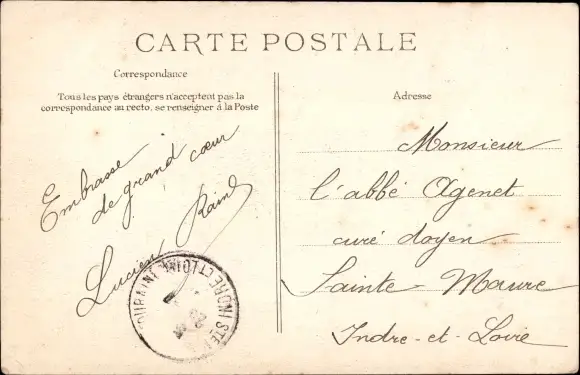 CARTE POSTALE
Correspondance
Tous les pays étrangers n'acceptent pas la
correspondance au recto, se renseigner à la Poste
Embrasse
de grand cœur
Lucien
Adresse
Monsieur
l'abbé Agenet
curé doyen
Sainte-Maure
Indre-et-Loire
INDRE ET LOIRE